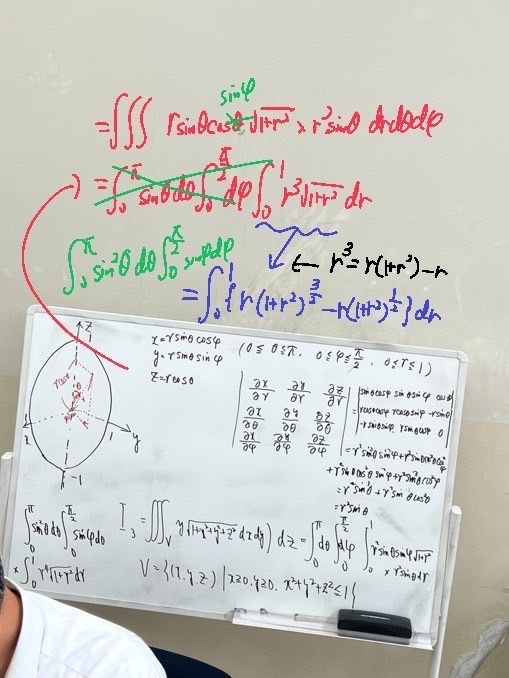 sinφ
=∫∫∫ r sinθ cosθ √1+r² × r² sinθ dr dθ dφ
=∫₀^π sinθ dθ ∫₀^(π/2) dφ ∫₀¹ r³√1+r² dr
∫₀^π sin²θ dθ ∫₀^(π/2) sinφ dφ
← r³=r(1+r²)-r
=∫₀¹{r(1+r²)^(3/2) - r(1+r²)^(1/2)}dr
z
1
x
1
y
-1
x=r sinθ cosφ
y=r sinθ sinφ
z=r cosθ
(0≦θ≦π, 0≦φ≦π/2, 0≦r≦1)
| ∂x/∂r ∂y/∂r ∂z/∂r |
| ∂x/∂θ ∂y/∂θ ∂z/∂θ |
| ∂x/∂φ ∂y/∂φ ∂z/∂φ |
| sinθcosφ sinθ sinφ cosθ |
| rcosθcosφ rcosθ sinφ -rsinθ |
| -rsinθ sinφ rsinθ cosφ 0 |
=r² sin³θ sin²φ + r² sinθ cos²θ cos²φ
+ r² sinθ cos²θ sin²φ + r² sin³θ cos²φ
= r² sin³θ + r² sinθ cos²θ
= r² sinθ
∫₀^π sin²θ dθ ∫₀^(π/2) sinφ dφ
× ∫₀¹ r³√1+r² dr
I₃ = ∫∫∫_V y√1+x²+y²+z² dx dy dz = ∫₀^π dθ ∫₀^(π/2) dφ ∫₀¹ r sinθ sinφ √1+r²
× r² sinθ dr
V = {(x,y,z) | x≥0, y≥0, x²+y²+z²≤1}